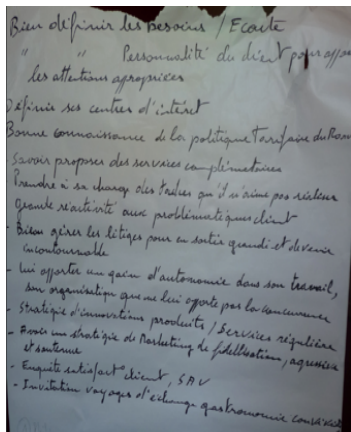 Bien définir les besoins / Ecoute
" " Personnalité du client pour
les attentions appropriées
Définir ses centres d'intérêt
Bonne connaissance de la politique Tarifaire du
- Savoir proposer des services complémentaires
- Prendre à sa charge des taches qu'il n'aime pas réaliser
Grande réactivité aux problématiques client
- Bien gérer les litiges pour en sortir grandi et devenir
incontournable
- lui apporter un gain d'autonomie dans son travail,
son organisation que ne lui apporte pas la concurrence
- Stratégie d'innovations produits / Services régulière
- Avoir une stratégie de Marketing de fidélisation, agressive
et soutenue
- Enquête satisfact° client, SAV
- Invitation voyages d'échange gastronomie